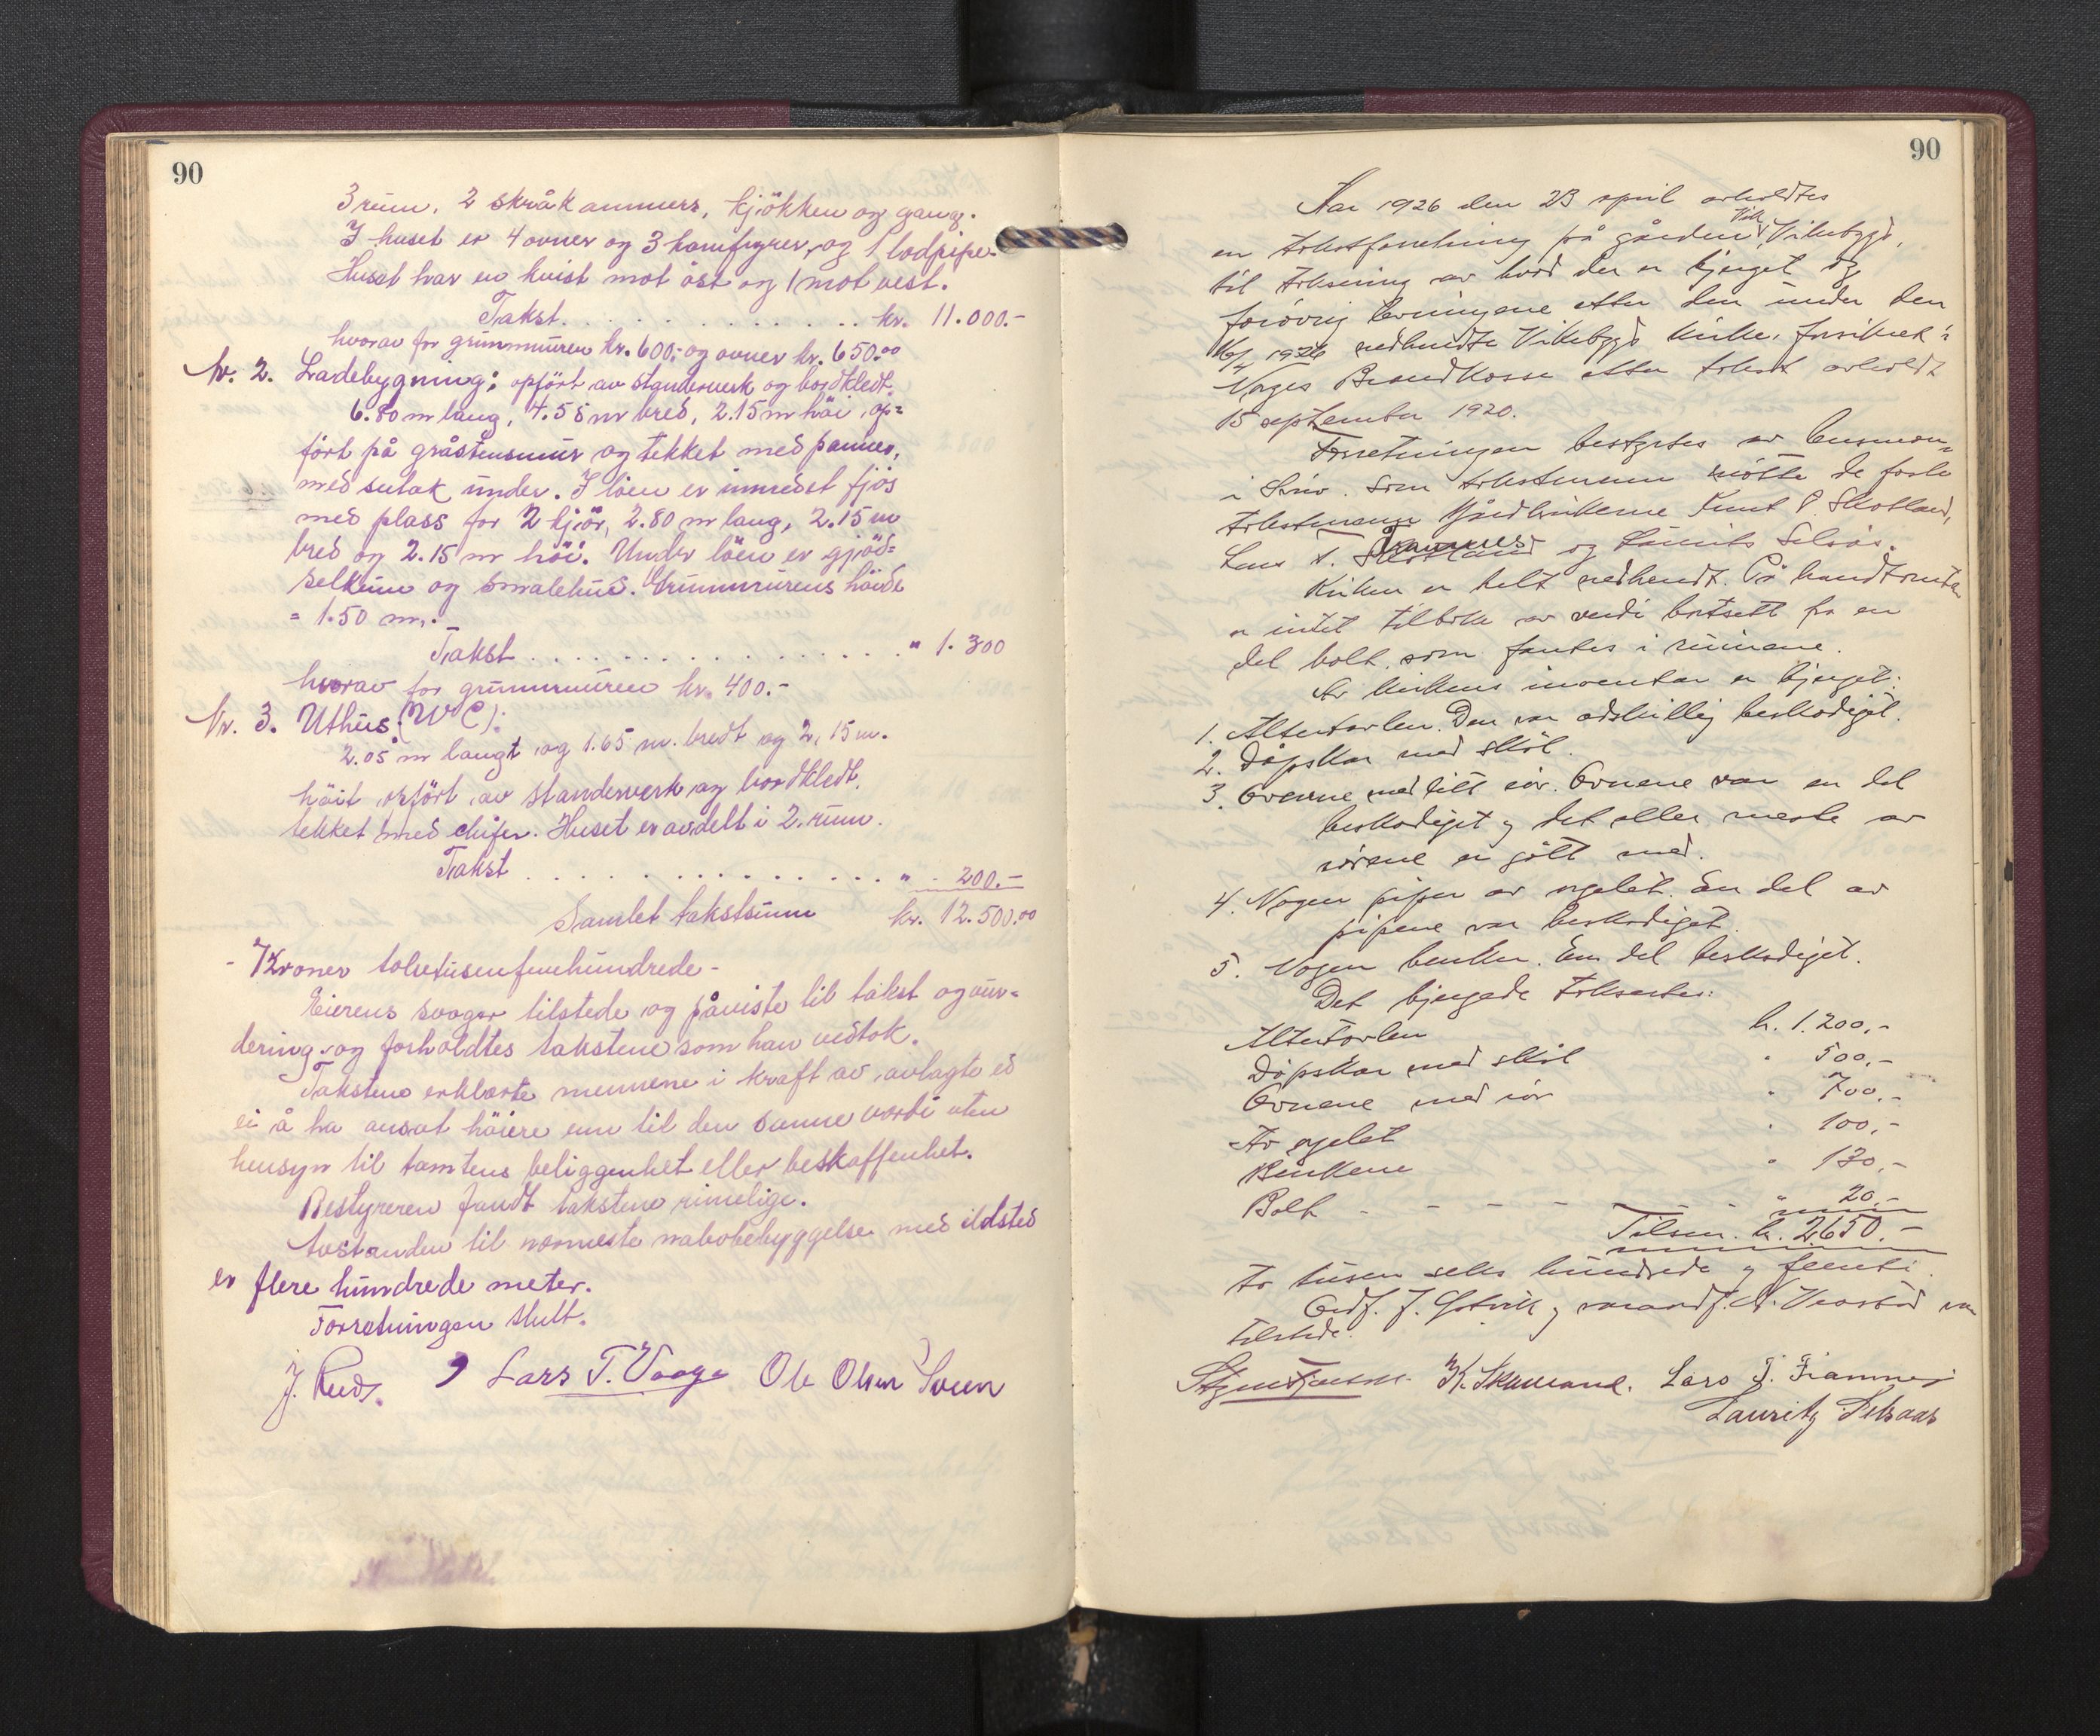 90
3 rum, 2 skråkammers, kjökken og gang.
I huset er 4 ovner og 3 komfyrer, og 1 lodpipe.
Huset har en kvist mot öst og 1 mot vest.
Takst. . . . . . . . . . . . . . kr. 11.000.-
hvorav for grunnmuren kr. 600,- og ovner kr. 650.00
Nr. 2. Ladebygning: opfört av standerverk og bordkledt.
6.80 m lang, 4.55 m bred, 2.15 m höi, op=
fört på gråstensmur og tekket med panner,
med sutak under. I löen er innredet fjös
med plass for 2 kjör, 2.80 m lang, 2.15 m
bred og 2.15 m höi. Under löen er gjöd=
selkum og smalehus. Grunnmurens höide
= 1.50 m.
Takst . . . . . . . . . . . . . . . . " 1.300
hvorav for grunnmuren kr. 400.-
Nr. 3. Uthus: (W C):
2.05 m langt og 1.65 m. bredt og 2,15 m.
höit opfört av standerverk og bordkledt,
tekket med skifer. Huset er avdelt i 2. rum.
Takst . . . . . . . . . . . . . . " - 200.-
Samlet takstsum kr. 12.500.00
- Kroner tolvtusenfemhundrede -
Eierens svoger tilstede og påviste til takst og vur=
dering og forholdtes takstene som han vedtok.
Takstene erklærte mennene i kraft av avlagte ed
ei å ha ansat höiere enn til den sanne værdi uten
hensyn til tomtens beliggenhet eller beskaffenhet.
Bestyreren fandt takstene rimelige.
Avstanden til nærmeste nabobebyggelse med ildsted
er flere hundrede meter.
Forretningen slutt.
J. Rud. Lars T. Vaage Ole Olsen Sveen
90
Aar 1926 den 23 april avholdtes
en takstforretning på gården Vik, Vikebygd,
til taksering av hvad der er bjerget og
forövrig levningene etter den under den
16/4 1926 nedbrendte Vikebygd kirke, forsikret i
Norges Brandkasse etter takst avholdt
15 september 1920.
Forretningen bestyrtes av lensman=
i Som takstmenn mötte de faste
takstmenn Gårdbrukerne Knut P. Skotland,
Lars T. Framnes og Laurits Selsås.
Kirken er helt nedbrendt. På branntomten
er intet tilbake av verdi bortsett fra en
del bolt, som fantes i ruinene.
Av kirkens inventar er bjerget:
1. Altertavlen. Den var adskillig beskadiget.
2. Döpskar med skål.
3. Ovnene med litt rör. Ovnene var en del
beskadiget og det aller meste av
rörene er gått med.
4. Nogen piper av orgelet. En del av
pipene var beskadiget.
5. Nogen benker. En del beskadiget.
Det bjergede takseertes:
Altertavlen kr. 1.200,-
Döpskar med skål " 500,-
Ovnene med rör " 700,-
Av orgelet " 100,-
Benkene " 130,-
Bolt - - - - - - - " 20,-
Tilsm. kr. 2650.-
To tusen seks hundrede og femti
Ordf. J. og varaordf. N. var
tilstede.
K. Skaaland. Lars T. Framnes
Lauritz Selsaas